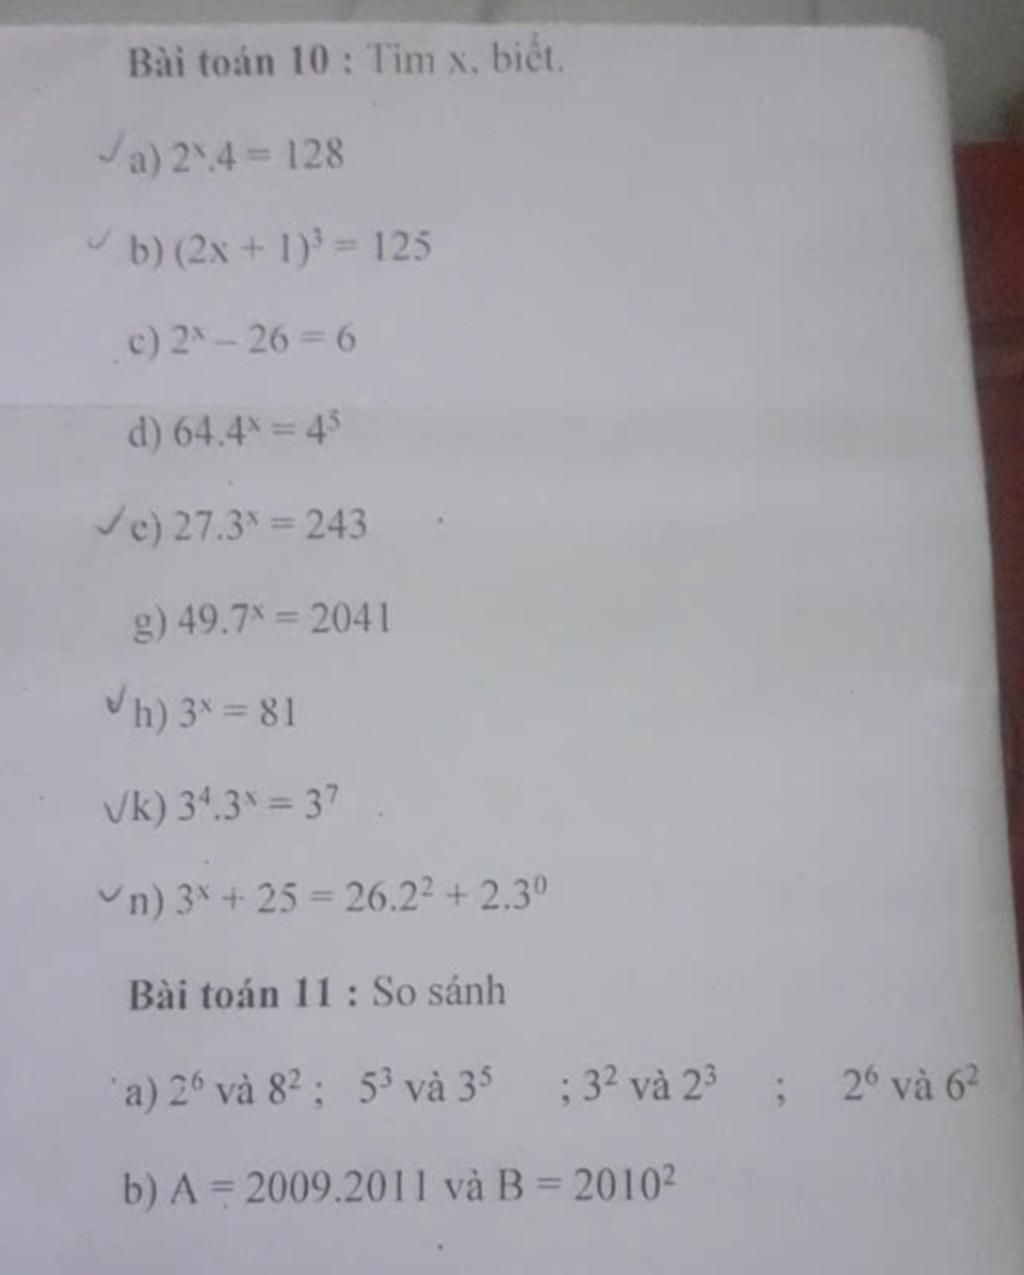 Bài toán 10 : Tìm x, biết.
a) 2ˣ.4 = 128
b) (2x + 1)³ = 125
c) 2ˣ – 26 = 6
d) 64.4ˣ = 4⁵
e) 27.3ˣ = 243
g) 49.7ˣ = 2041
h) 3ˣ = 81
k) 3⁴.3ˣ = 3⁷
n) 3ˣ + 25 = 26.2² + 2.3⁰
Bài toán 11 : So sánh
a) 2⁶ và 8² ; 5³ và 3⁵ ; 3² và 2³ ; 2⁶ và 6²
b) A = 2009.2011 và B = 2010²